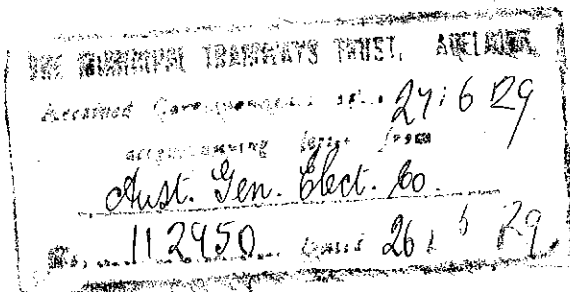 THE MUNICIPAL TRAMWAYS TRUST, ADELAIDE
Received Correspondence 27/6/29
accompanying letter from
Aust. Gen. Elect. Co.
No. 112950 Dated 26/6/29